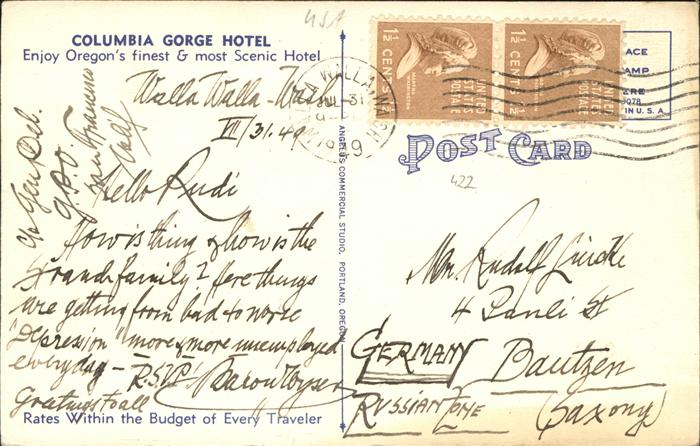 USA
COLUMBIA GORGE HOTEL
Enjoy Oregon's finest & most Scenic Hotel
Walla Walla - Wash
VII/31.49
c/o Gen Del.
G.P.O
San Francisco
Calif
Hello Rudi
How is thing & how is the
Grand family? Here things
are getting from bad to worse
"Depression" more & more unemployed
everyday - R.S.V.P.
Greetings to all
Rates Within the Budget of Every Traveler
ANGELUS COMMERCIAL STUDIO, PORTLAND, OREGON
WALLA WALLA
JUL 31
1949
1½ CENTS
MARTHA WASHINGTON
UNITED STATES POSTAGE
1½ CENTS
UNITED STATES POSTAGE
ACE
AMP
ERE
IN U. S. A.
POST CARD
422
Mr. Rudolf
4 Pauli St
GERMANY Bautzen
RUSSIAN ZONE (Saxony)